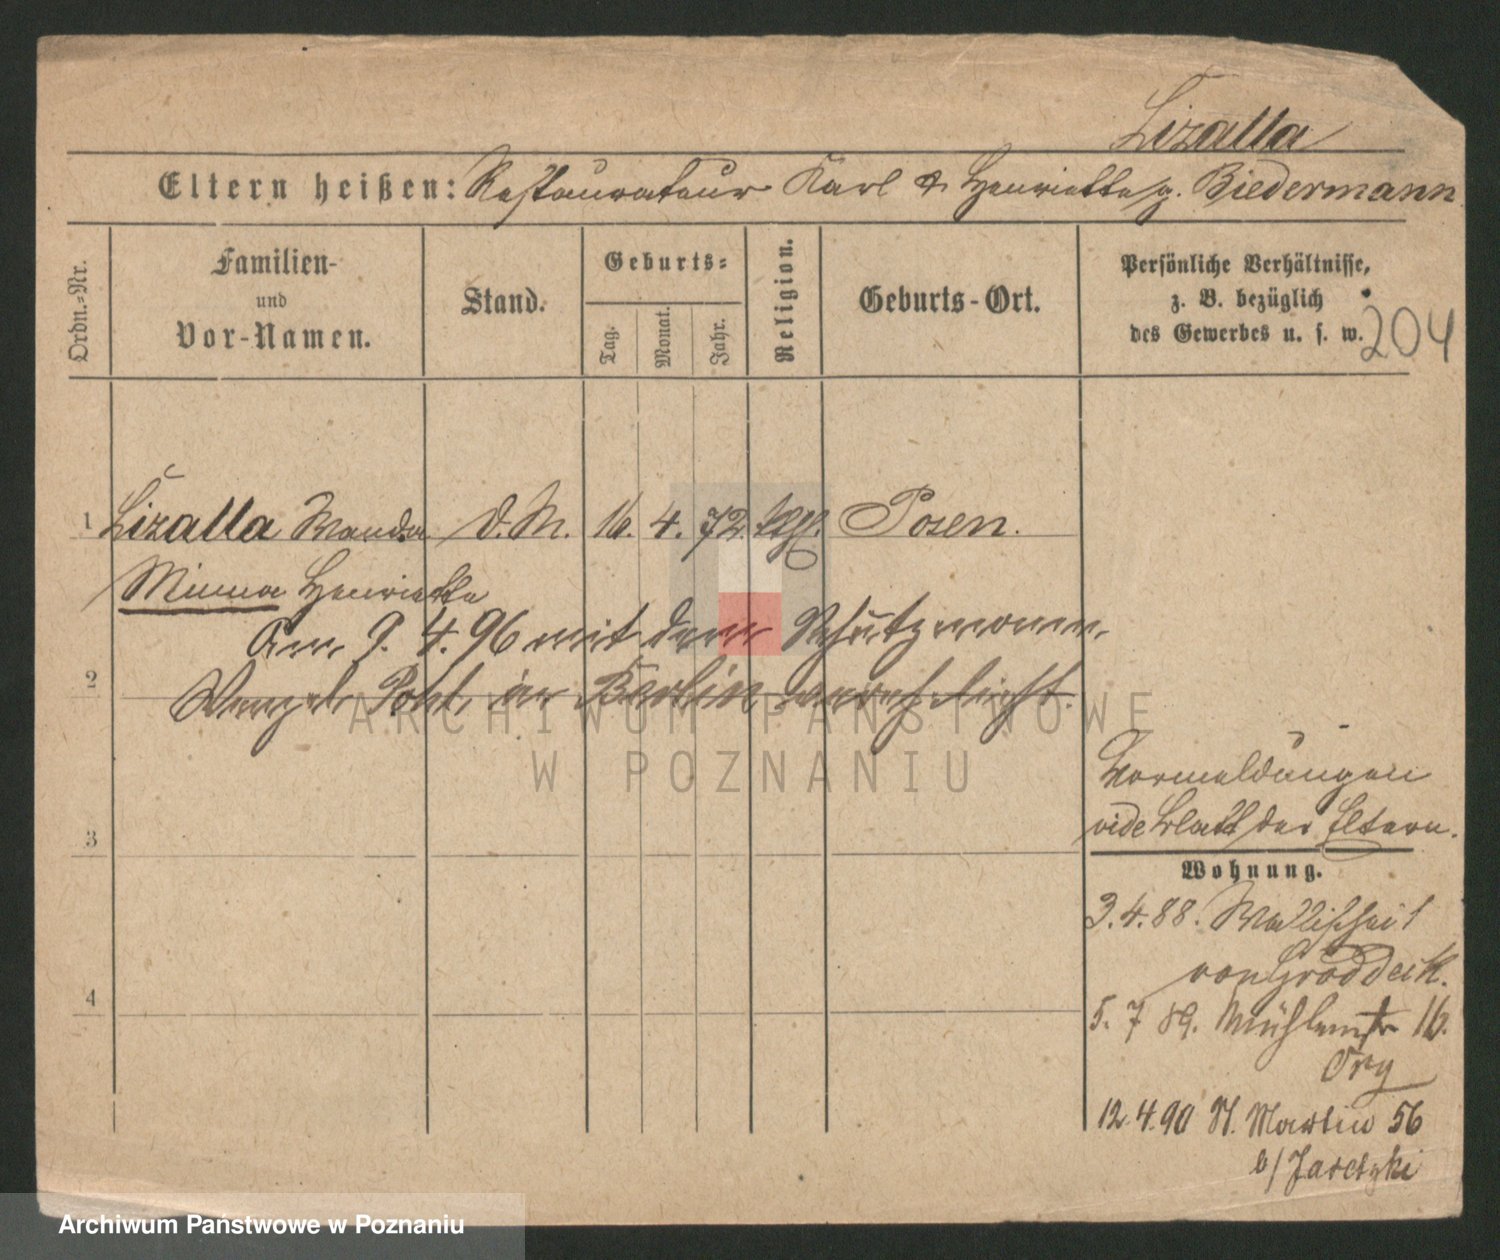 Lizalla
Eltern heißen: Restaurateur Karl & Henriette g. Biedermann
Ordn.-Nr.
Familien-
und
Vor-Namen.
Stand.
Geburts-
Tag.
Monat.
Jahr.
Religion.
Geburts-Ort.
Persönliche Verhältnisse,
z. B. bezüglich
des Gewerbes u. s. w.
204
1 Lizalla Wanda d. M. 16. 4. 72. Posen.
Minna Henriette
Am 9. 4. 96 mit dem Schutzmann
2
Wenzel Pohl in Berlin verehelicht.
ARCHIWUM PAŃSTWOWE
W POZNANIU
Vormeldungen
vide Blatt der Eltern.
3
Wohnung.
3. 4. 88. Wallischei 1
von Groddeck.
4
5. 7 89. Mühlenstr 16.
12. 4. 90 St. Martin 56
b/ Jaretzki
Archiwum Państwowe w Poznaniu